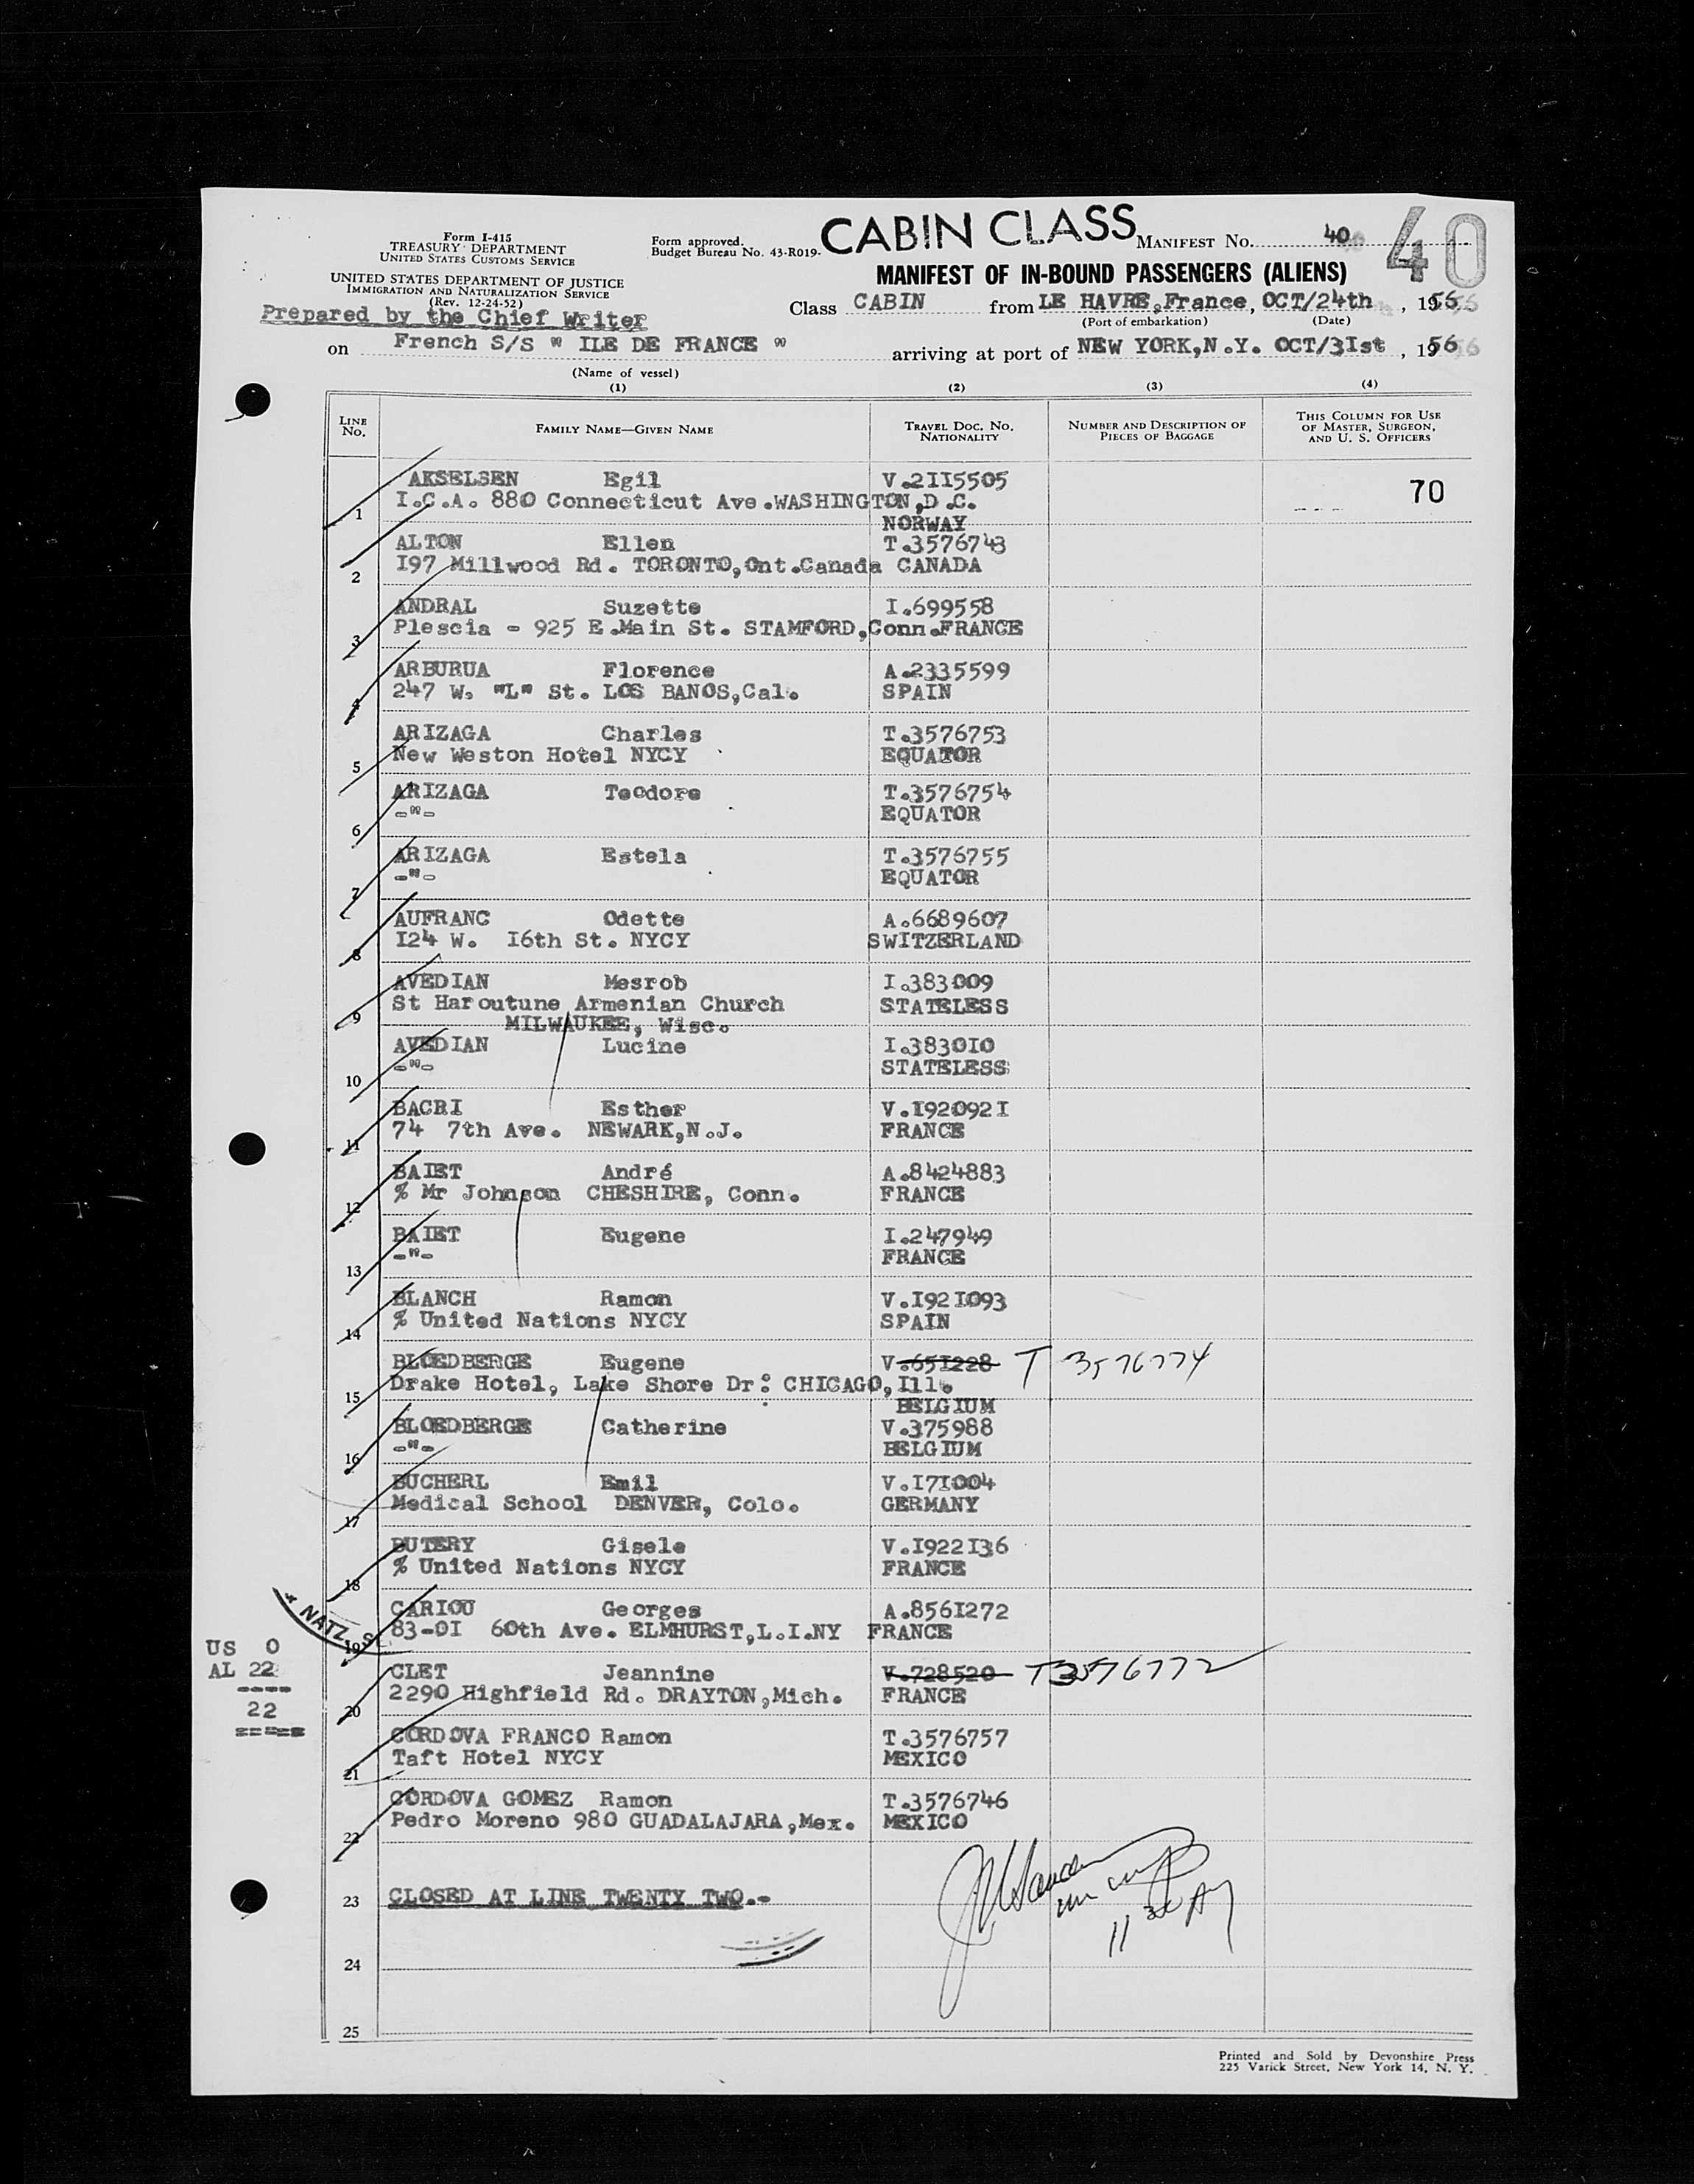 Form I-415
TREASURY DEPARTMENT
UNITED STATES CUSTOMS SERVICE
UNITED STATES DEPARTMENT OF JUSTICE
IMMIGRATION AND NATURALIZATION SERVICE
(Rev. 12-24-52)
Prepared by the Chief Writer
Form approved.
Budget Bureau No. 43-R019-
CABIN CLASS
MANIFEST NO. 40
40
MANIFEST OF IN-BOUND PASSENGERS (ALIENS)
Class CABIN from LE HAVRE,France, OCT/24th, 1956
(Port of embarkation) (Date)
on French S/S " ILE DE FRANCE " arriving at port of NEW YORK,N.Y. OCT/3Ist, 1956
(Name of vessel)
(1) (2) (3) (4)
LINE No. FAMILY NAME—GIVEN NAME TRAVEL DOC. NO. NATIONALITY NUMBER AND DESCRIPTION OF PIECES OF BAGGAGE THIS COLUMN FOR USE OF MASTER, SURGEON, AND U. S. OFFICERS
AKSELSEN Egil V.2II5505 70
1 I.C.A. 880 Connecticut Ave.WASHINGTON,D.C.
NORWAY
ALTON Ellen T.3576743
2 I97 Millwood Rd. TORONTO,Ont.Canada CANADA
ANDRAL Suzette I.699558
3 Plescia - 925 E.Main St. STAMFORD,Conn.FRANCE
ARBURUA Florence A.2335599
4 247 W. "L" St. LOS BANOS,Cal. SPAIN
ARIZAGA Charles T.3576753
5 New Weston Hotel NYCY EQUATOR
ARIZAGA Teodore T.3576754
6 -"- EQUATOR
ARIZAGA Estela T.3576755
7 -"- EQUATOR
AUFRANC Odette A.6689607
8 I24 W. I6th St. NYCY SWITZERLAND
AVEDIAN Mesrob I.383009
9 St Haroutune Armenian Church STATELESS
MILWAUKEE, Wisc.
AVEDIAN Lucine I.3830I0
10 -"- STATELESS
BACRI Esther V.I92092I
11 74 7th Ave. NEWARK,N.J. FRANCE
BAIET André A.8424883
12 % Mr Johnson CHESHIRE, Conn. FRANCE
BAIET Eugene I.247949
13 -"- FRANCE
BLANCH Ramon V.I92I093
14 % United Nations NYCY SPAIN
BLOEDBERGE Eugene V.65I228 T 3576774
15 Drake Hotel, Lake Shore Dr: CHICAGO,Ill.
BELGIUM
BLOEDBERGE Catherine V.375988
16 -"- BELGIUM
BUCHERL Emil V.I7I004
17 Medical School DENVER, Colo. GERMANY
BUTERY Gisele V.I922I36
18 % United Nations NYCY FRANCE
CARIOU Georges A.856I272
19 83-0I 60th Ave. ELMHURST,L.I.NY FRANCE
& NATZ. S
CLET Jeannine V.728520 T3576772
20 2290 Highfield Rd. DRAYTON,Mich. FRANCE
US 0
AL 22
----
22
=====
CORDOVA FRANCO Ramon T.3576757
21 Taft Hotel NYCY MEXICO
CORDOVA GOMEZ Ramon T.3576746
22 Pedro Moreno 980 GUADALAJARA,Mex. MEXICO
23 CLOSED AT LINE TWENTY TWO.-
24
25
Printed and Sold by Devonshire Press
225 Varick Street, New York 14, N. Y.